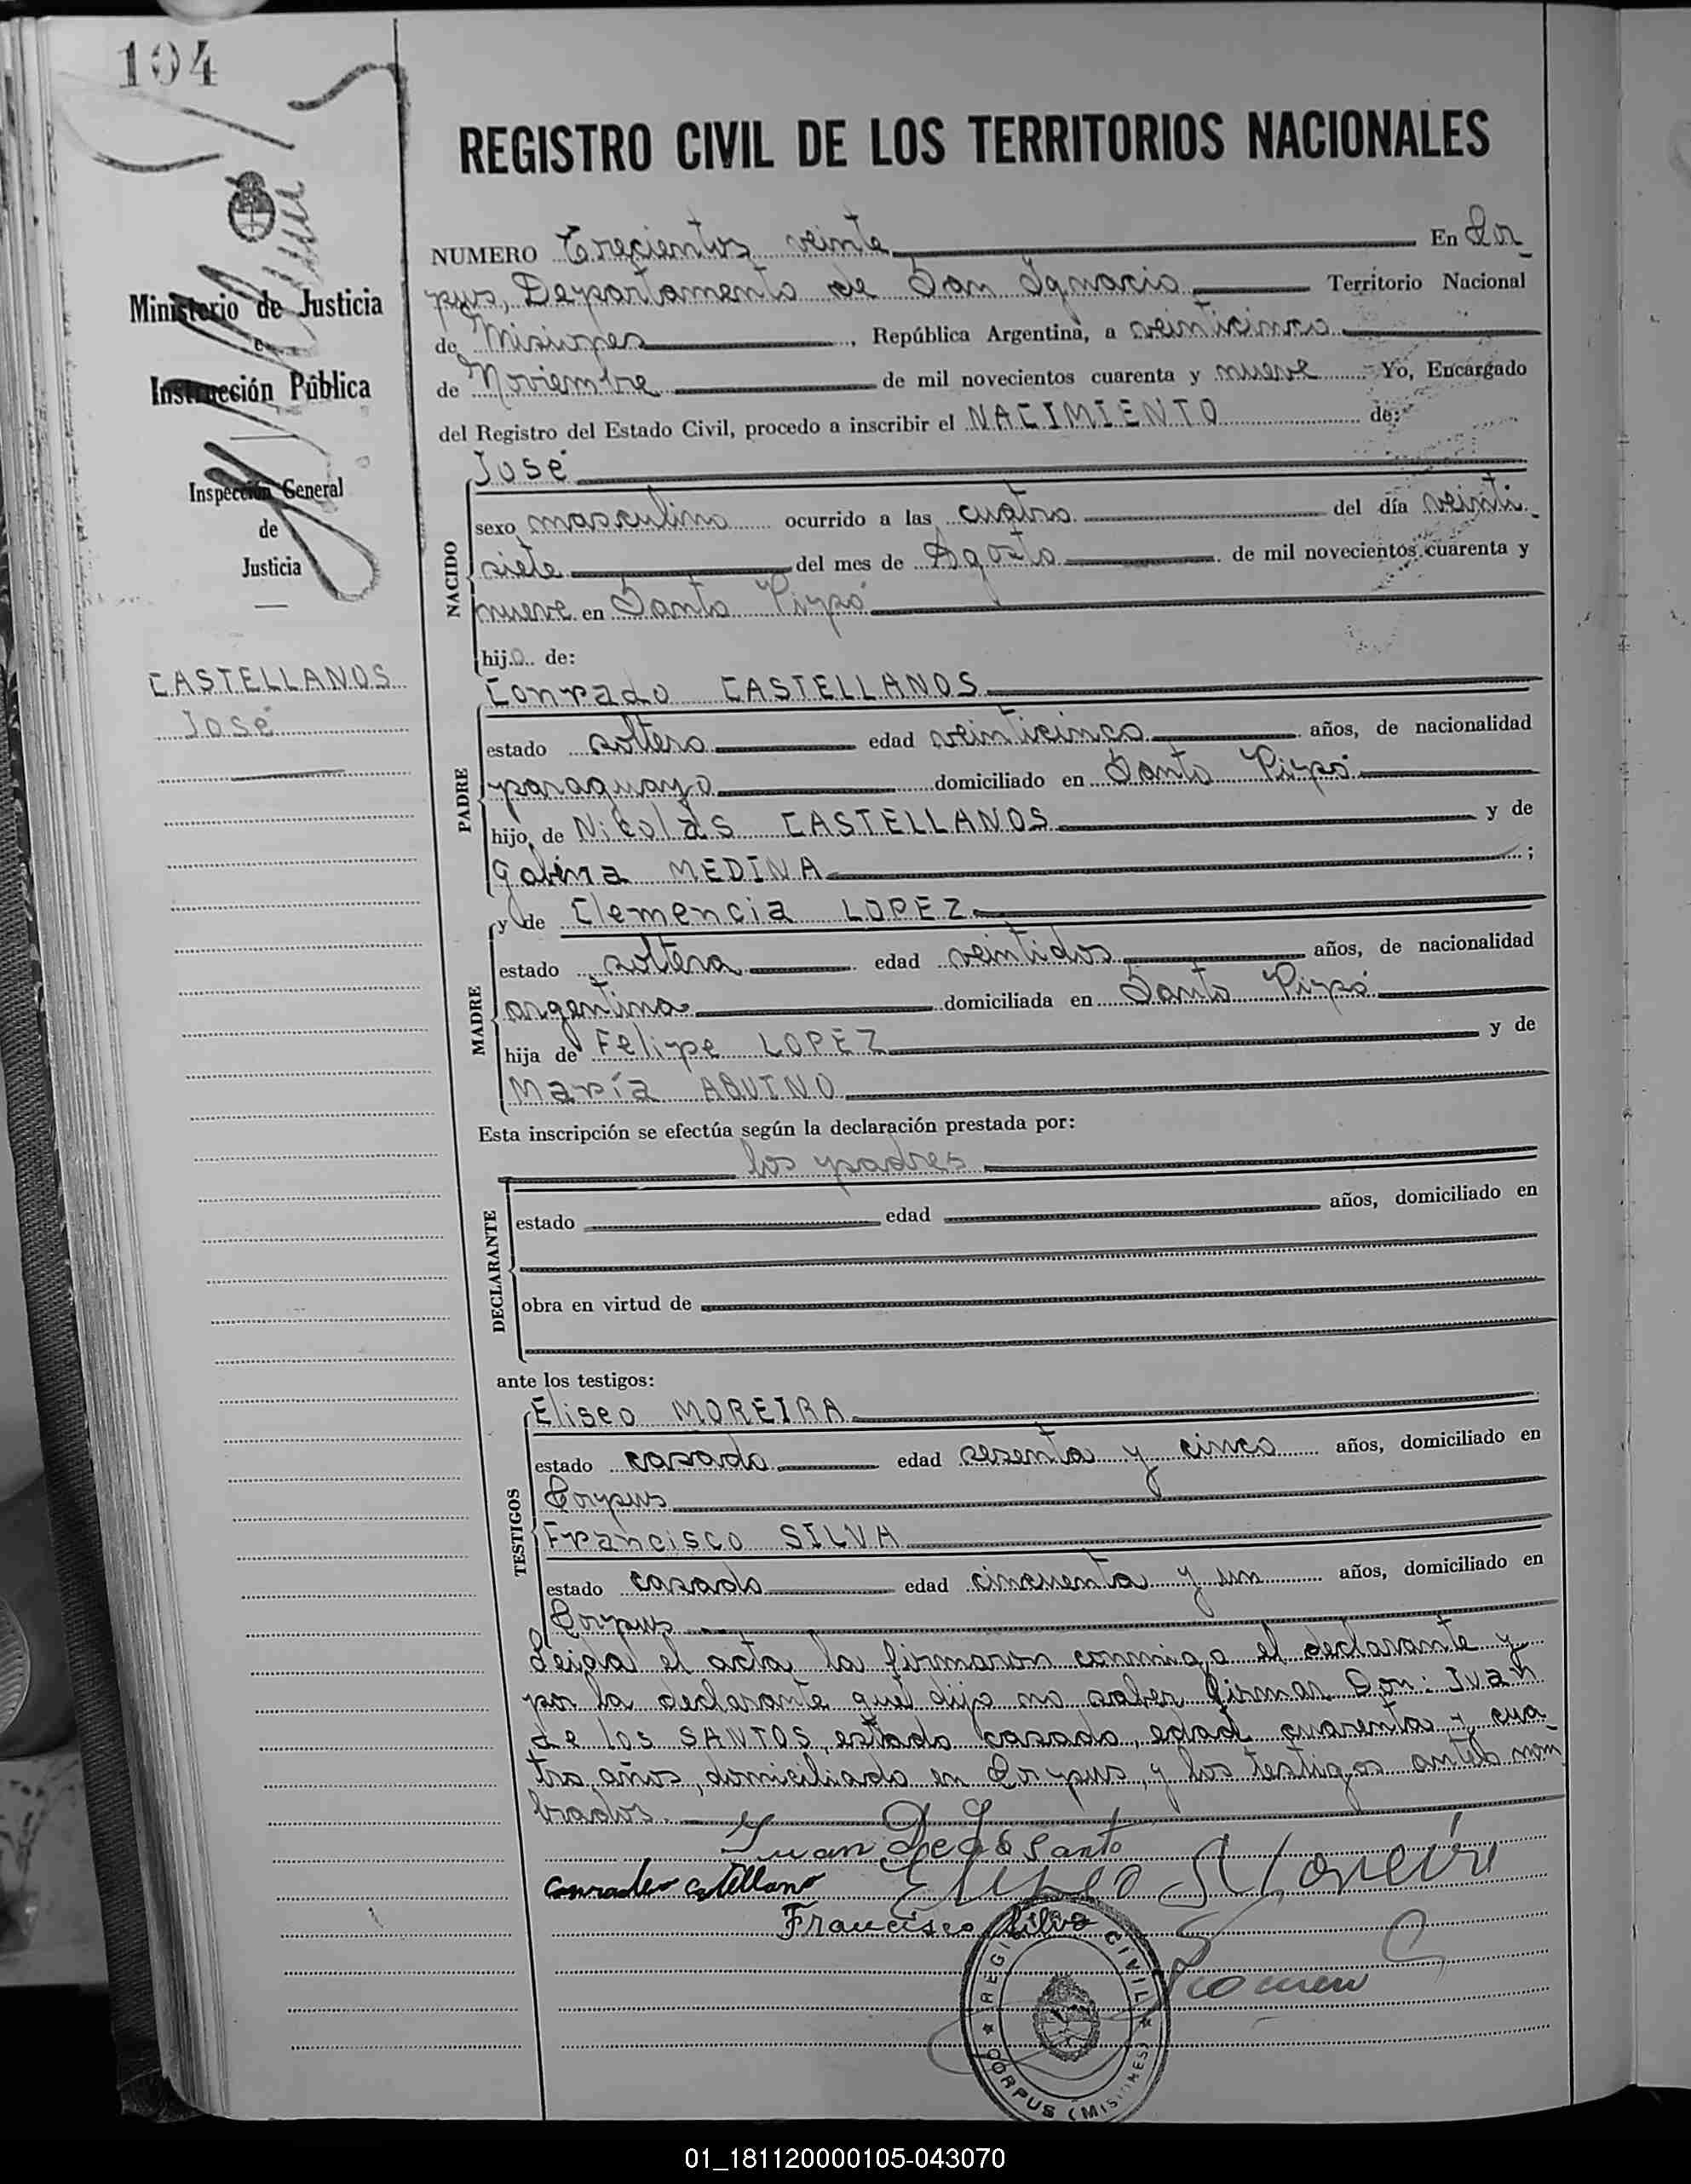 104
REGISTRO CIVIL DE LOS TERRITORIOS NACIONALES
Ministerio de Justicia
e
Instrucción Pública
Inspección General
de
Justicia
CASTELLANOS
José
NUMERO Trecientos veinte En Cor
pus, Departamento de San Ignacio Territorio Nacional
de Misiones, República Argentina, a veinticinco
de Noviembre de mil novecientos cuarenta y nueve Yo, Encargado
del Registro del Estado Civil, procedo a inscribir el NACIMIENTO de:
José
NACIDO
sexo masculino ocurrido a las cuatro del día veinti
siete del mes de Agosto de mil novecientos cuarenta y
nueve en Santo Pipó
hijo de:
Conrado CASTELLANOS
PADRE
estado soltero edad veinticinco años, de nacionalidad
paraguayo domiciliado en Santo Pipó
hijo de Nicolás CASTELLANOS y de
Gabina MEDINA;
y de Clemencia LOPEZ
MADRE
estado soltera edad veintidos años, de nacionalidad
argentina domiciliada en Santo Pipó
hija de Felipe LOPEZ y de
María AQUINO
Esta inscripción se efectúa según la declaración prestada por:
los padres
DECLARANTE
estado edad años, domiciliado en
obra en virtud de
ante los testigos:
Eliseo MOREIRA
TESTIGOS
estado casado edad sesenta y cinco años, domiciliado en
Corpus
Francisco SILVA
estado casado edad cincuenta y un años, domiciliado en
Corpus
Leida el acta la firmaron conmigo el declarante y
por la declarante que dijo no saber firmar Don: Juan
de los SANTOS, estado casado, edad cuarenta y cua
tro años, domiciliado en Corpus, y los testigos antes nom
brados.
Juan De Los Santo
Conrado Castellano Eliseo Moreira
Francisco Silva
REGISTRO CIVIL
CORPUS (MISIONES)
01_181120000105-043070